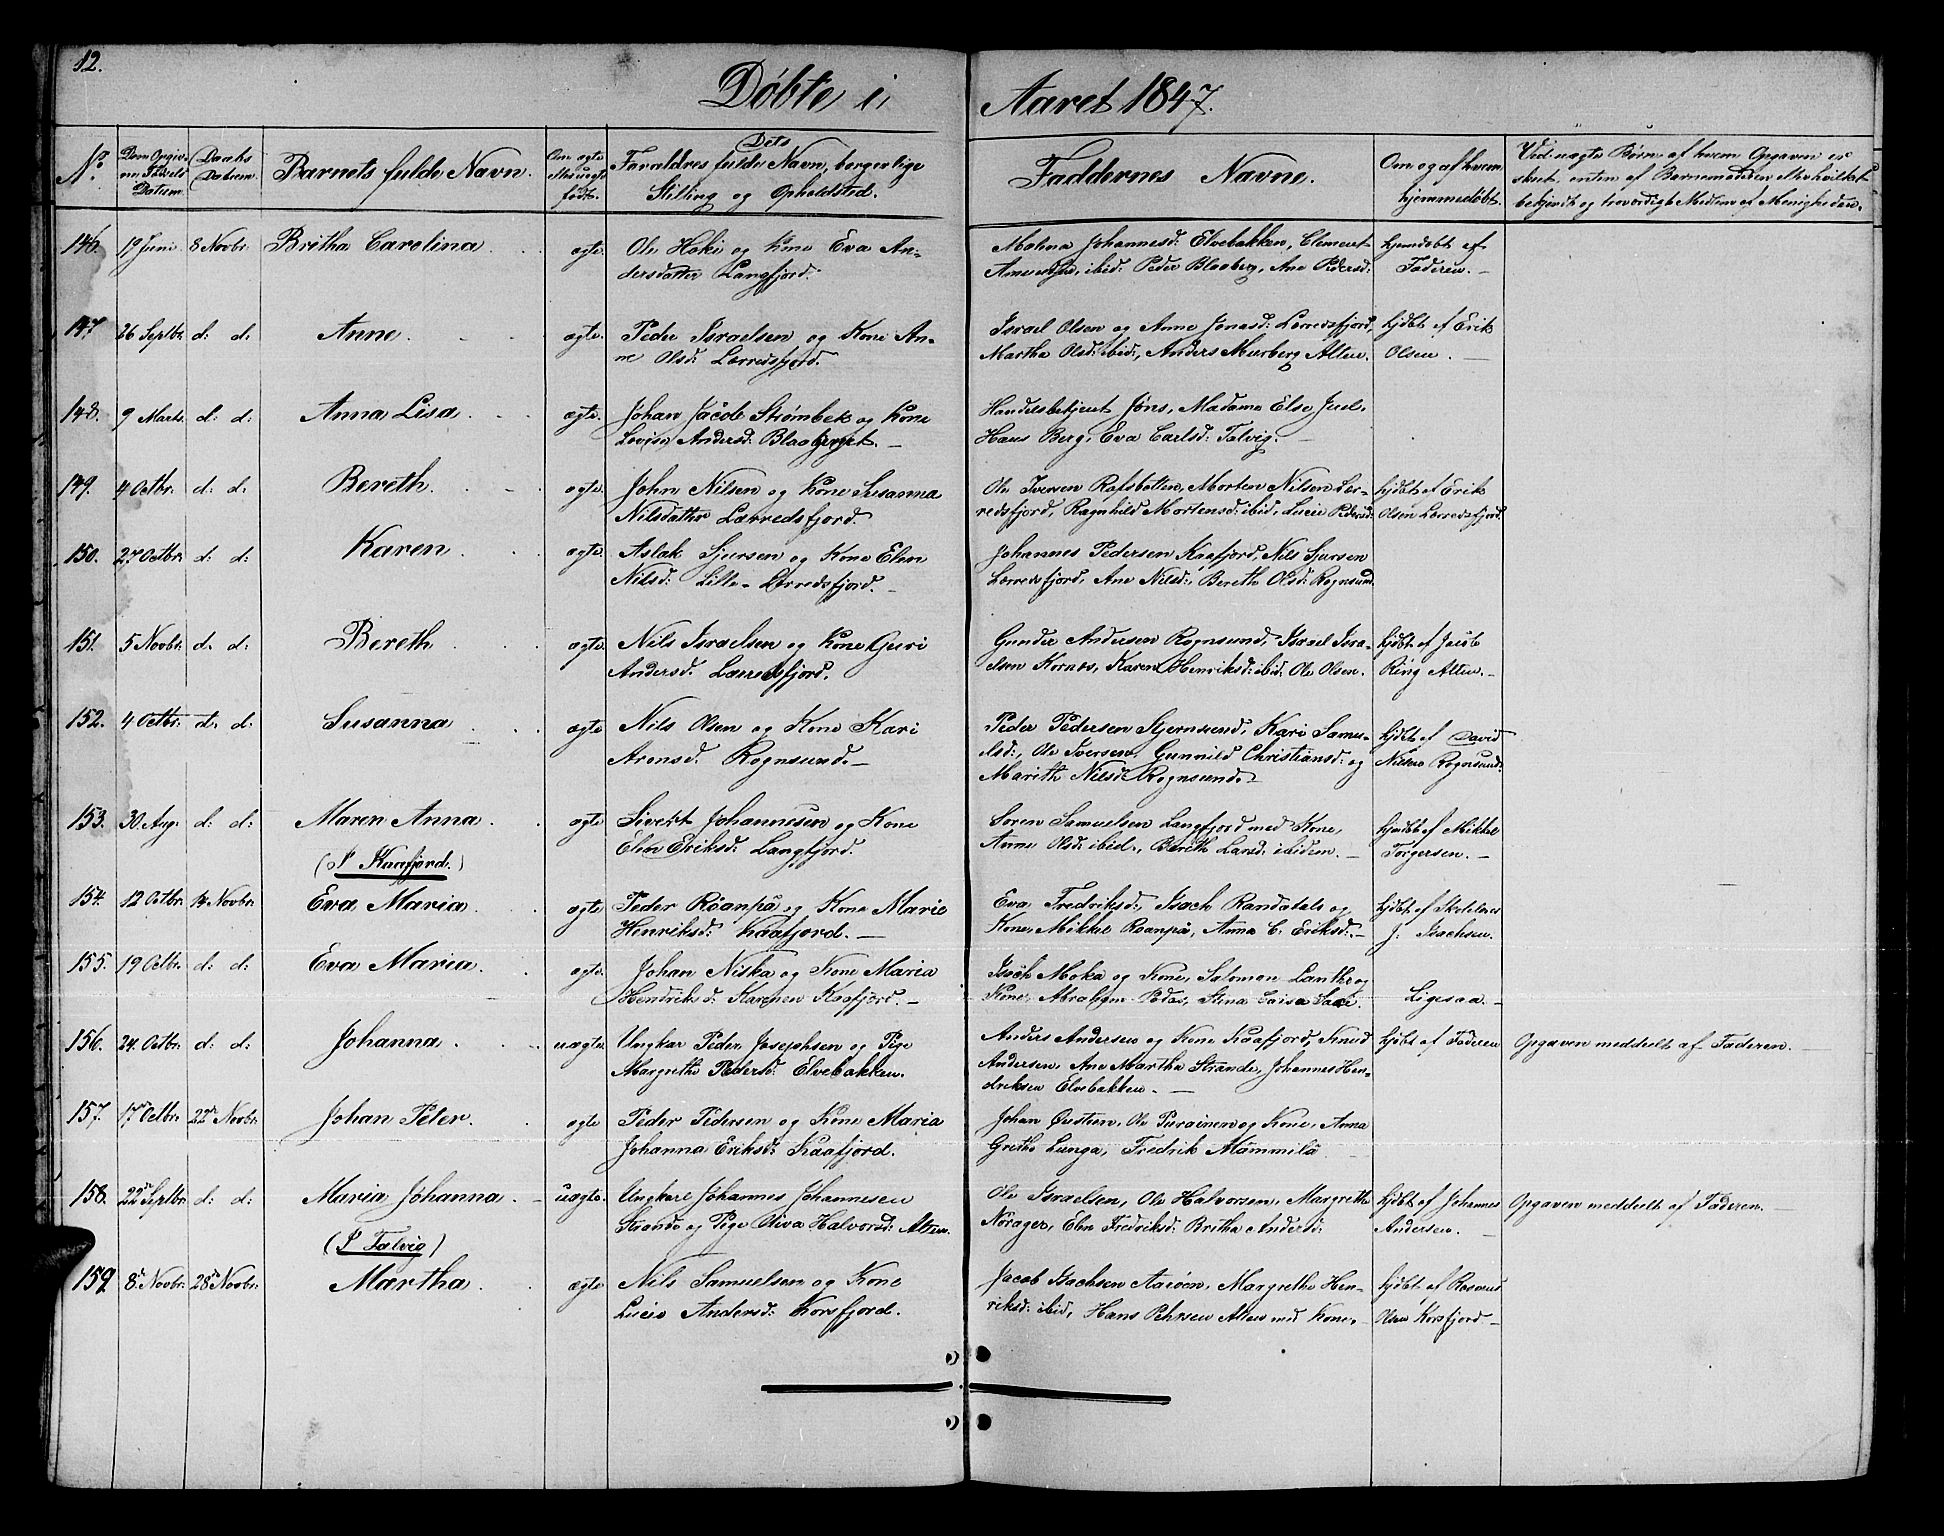 12.
Døbte i Aaret 1847.
No.
Den Opgivne Fødsels Datum
Daabs Datum.
Barnets fulde Navn.
Om ægte eller uægte født.
Dets Forældres fulde Navn, borgerlige Stilling og Opholdsted.
Faddernes Navne.
Om og af hvem hjemmedøbt.
Ved uægte Børn af hvem Opgaven er skeet, enten af Barnemoderen eller hvilket bekjendt og troværdigt Medlem af Menigheden.
146. 19 Juni 8 Novbr. Britha Carolina ægte. Ole Hoki og Kone Eva An- Malena Johannesd: Elvebakken, Clement hjemdøbt af
dersdatter Langfjord. ibid: Peder Blaaberg, Ane Pedersd: Faderen. –
147 26 Septbr. d: d: Anne. ægte. Peder Israelsen og Kone An- Israel Olsen og Anne Jonasd: Lerredsfjord, hjdbt af Erik
ne Olsd: Lærredsfjord. Martha Olsd: ibid:, Anders Murberg Alten. Olsen. –
148. 9 Marts. d: d: Anna Lisa ægte. Johan Jacob Strømbek og Kone Handelsbetjent Jöns, Madame Else Juel,
Lovisa Andersd: Blaaberget. – Hans Berg, Eva Carlsd: Talvig. –
149. 4 Octbr. d: d: Bereth. ægte. John Nilsen og Kone Susanna Ole Iversen Rafsbotten, Morten Nilsen Ler- hjdbt af Erik
Nilsdatter Lærredsfjord. redsfjord, Ragnhild Mortensd: ibid, Lucie Pedersd: Olsen Lerredsfjord.
150. 27 Octbr. d: d: Karen ægte. Aslak Sjursen og Kone Elen Johannes Pedersen Kaafjord, Nils Sjursen
Nilsd: Lille-Lerredsfjord. – Lærredsfjord, Ane Nilsd:, Bereth Olsd: Rognsund.
151. 5 Novbr. d: d: Bereth. ægte. Nils Israelsen og Kone Guri Gunder Andersen Rognsund, Israel Isra- hjdbt af Jacob
Andersd: Lærredsfjord. elsen Kornæs, Karen Henriksd: ibid: Ole Olsen. Ring Alten. –
152. 4 Octbr. d: d: Susanna ægte Nils Olsen og Kone Kari Peder Pedersen Stjernsund, Kari Samu- hjdbt af David
Aronsd: Rognsund. – elsd:, Ole Iversen Gunnild Christiansd: og Nilsen Rognsund.
Marith Nilsd: Rognsund.
153. 30. Aug. d: d: Maren Anna. ægte Sivert Johannesen og Kone Soren Samuelsen Langfjord med Kone, hjmdbt af Mikkel
Elen Eriksd: Langfjord. Anne Olsd: ibid:, Berith Larsd: ibidem. – Torgersen. –
(I Kaafjord.)
154. 12 Octbr. 14 Novbr. Eva Maria ægte Peder Röanpä og Kone Marie Eva Fredriksd:, Isach Randatals og hjdbt af Skolelærer
Henriksd: Kaafjord. – Kone, Mikkel Roanpä, Anna C. Eriksd: – J: Isachsen.
155. 19 Octbr. d: d: Eva Maria. ægte. Johan Niska og Kone Maria Isach Moka og Kone, Salomon og
Hendriksd: Kaafjord. – Kone, Abraham Stina Caisa Ligesaa –
156. 24. Octbr. d: d: Johanna. uægte. Ungkar Peder Josephsen og Pige Anders Andersen og Kone Kaafjord, Knud hjdbt af Faderen Opgaven meddeelt af Faderen.
Margrethe Pedersd: Elvebakken. Andersen, Ane Martha Strande, Johannes Hen-
driksen Elvebakken. –
157. 17 Octbr. 22 Novbr. Johan Peter. ægte Peder Pedersen og Kone Maria Johan Ole Purainen og Kone, Anna
Johanna Eriksd: Kaafjord. Grethe Lunga, Fredrik Mämmilä
158. 22 Septbr. d: d: Maria Johanna. uægte. Ungkarl Johannes Johannesen Ole Israelsen, Ole Halvorsen, Margrethe hjdbt af Johannes Opgaven meddeelt af Faderen. –
Strande og Pige Oliva Halvorsd: Alten. Norager, Elen Fredriksd: Britha Andersd: Andersen. –
(I Talvig)
159 8 Novbr. 28 Novbr. Martha ægte Nils Samuelsen og Kone Jacob Isachsen Aarøen, Margrethe Hen- hjdbt af Rasmus
Lucie Andersd: Korsfjord. riksd: ibid, Hans Pehrsen Alten med Kone. Olsen Korsfjord. –